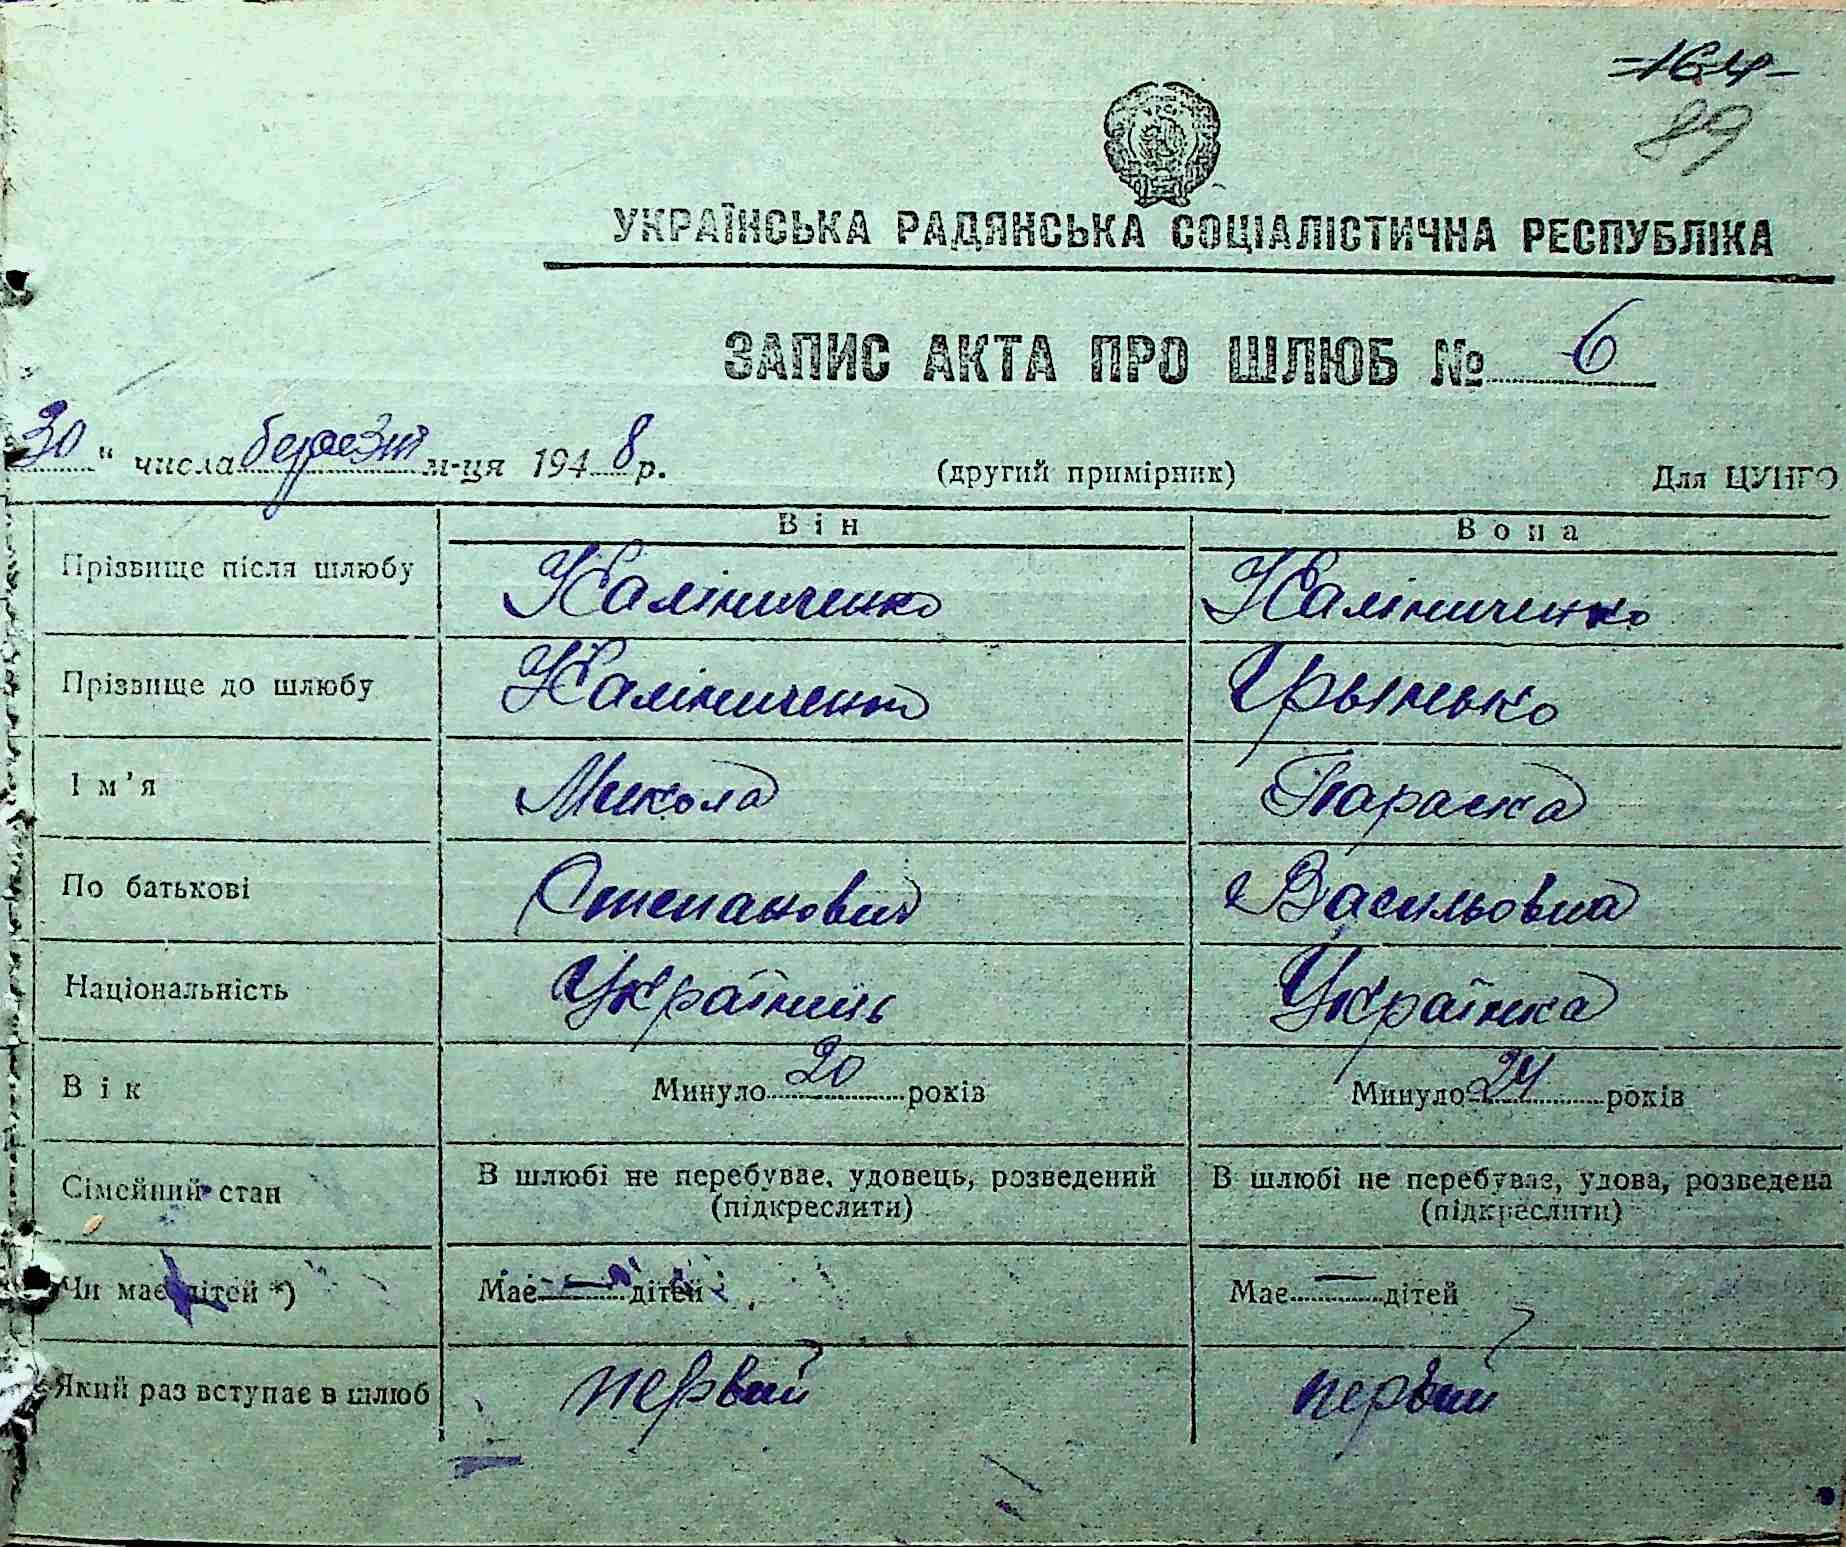 -164-
89
УКРАЇНСЬКА РАДЯНСЬКА СОЦІАЛІСТИЧНА РЕСПУБЛІКА
ЗАПИС АКТА ПРО ШЛЮБ № 6
30 " числа березня м-ця 1948 р. (другий примірник) Для ЦУНГО
Він Вона
Прізвище після шлюбу Калініченко Калініченко
Прізвище до шлюбу Калініченко Грынько
Ім'я Микола Параска
По батькові Степанович Васильовна
Національність Україниць Українка
Вік Минуло 20 років Минуло 24 років
Сімейний стан В шлюбі не перебуває, удовець, розведений В шлюбі не перебуває, удова, розведена
(підкреслити) (підкреслити)
Чи має дітей *) Має — дітей Має — дітей
Який раз вступає в шлюб первий первий